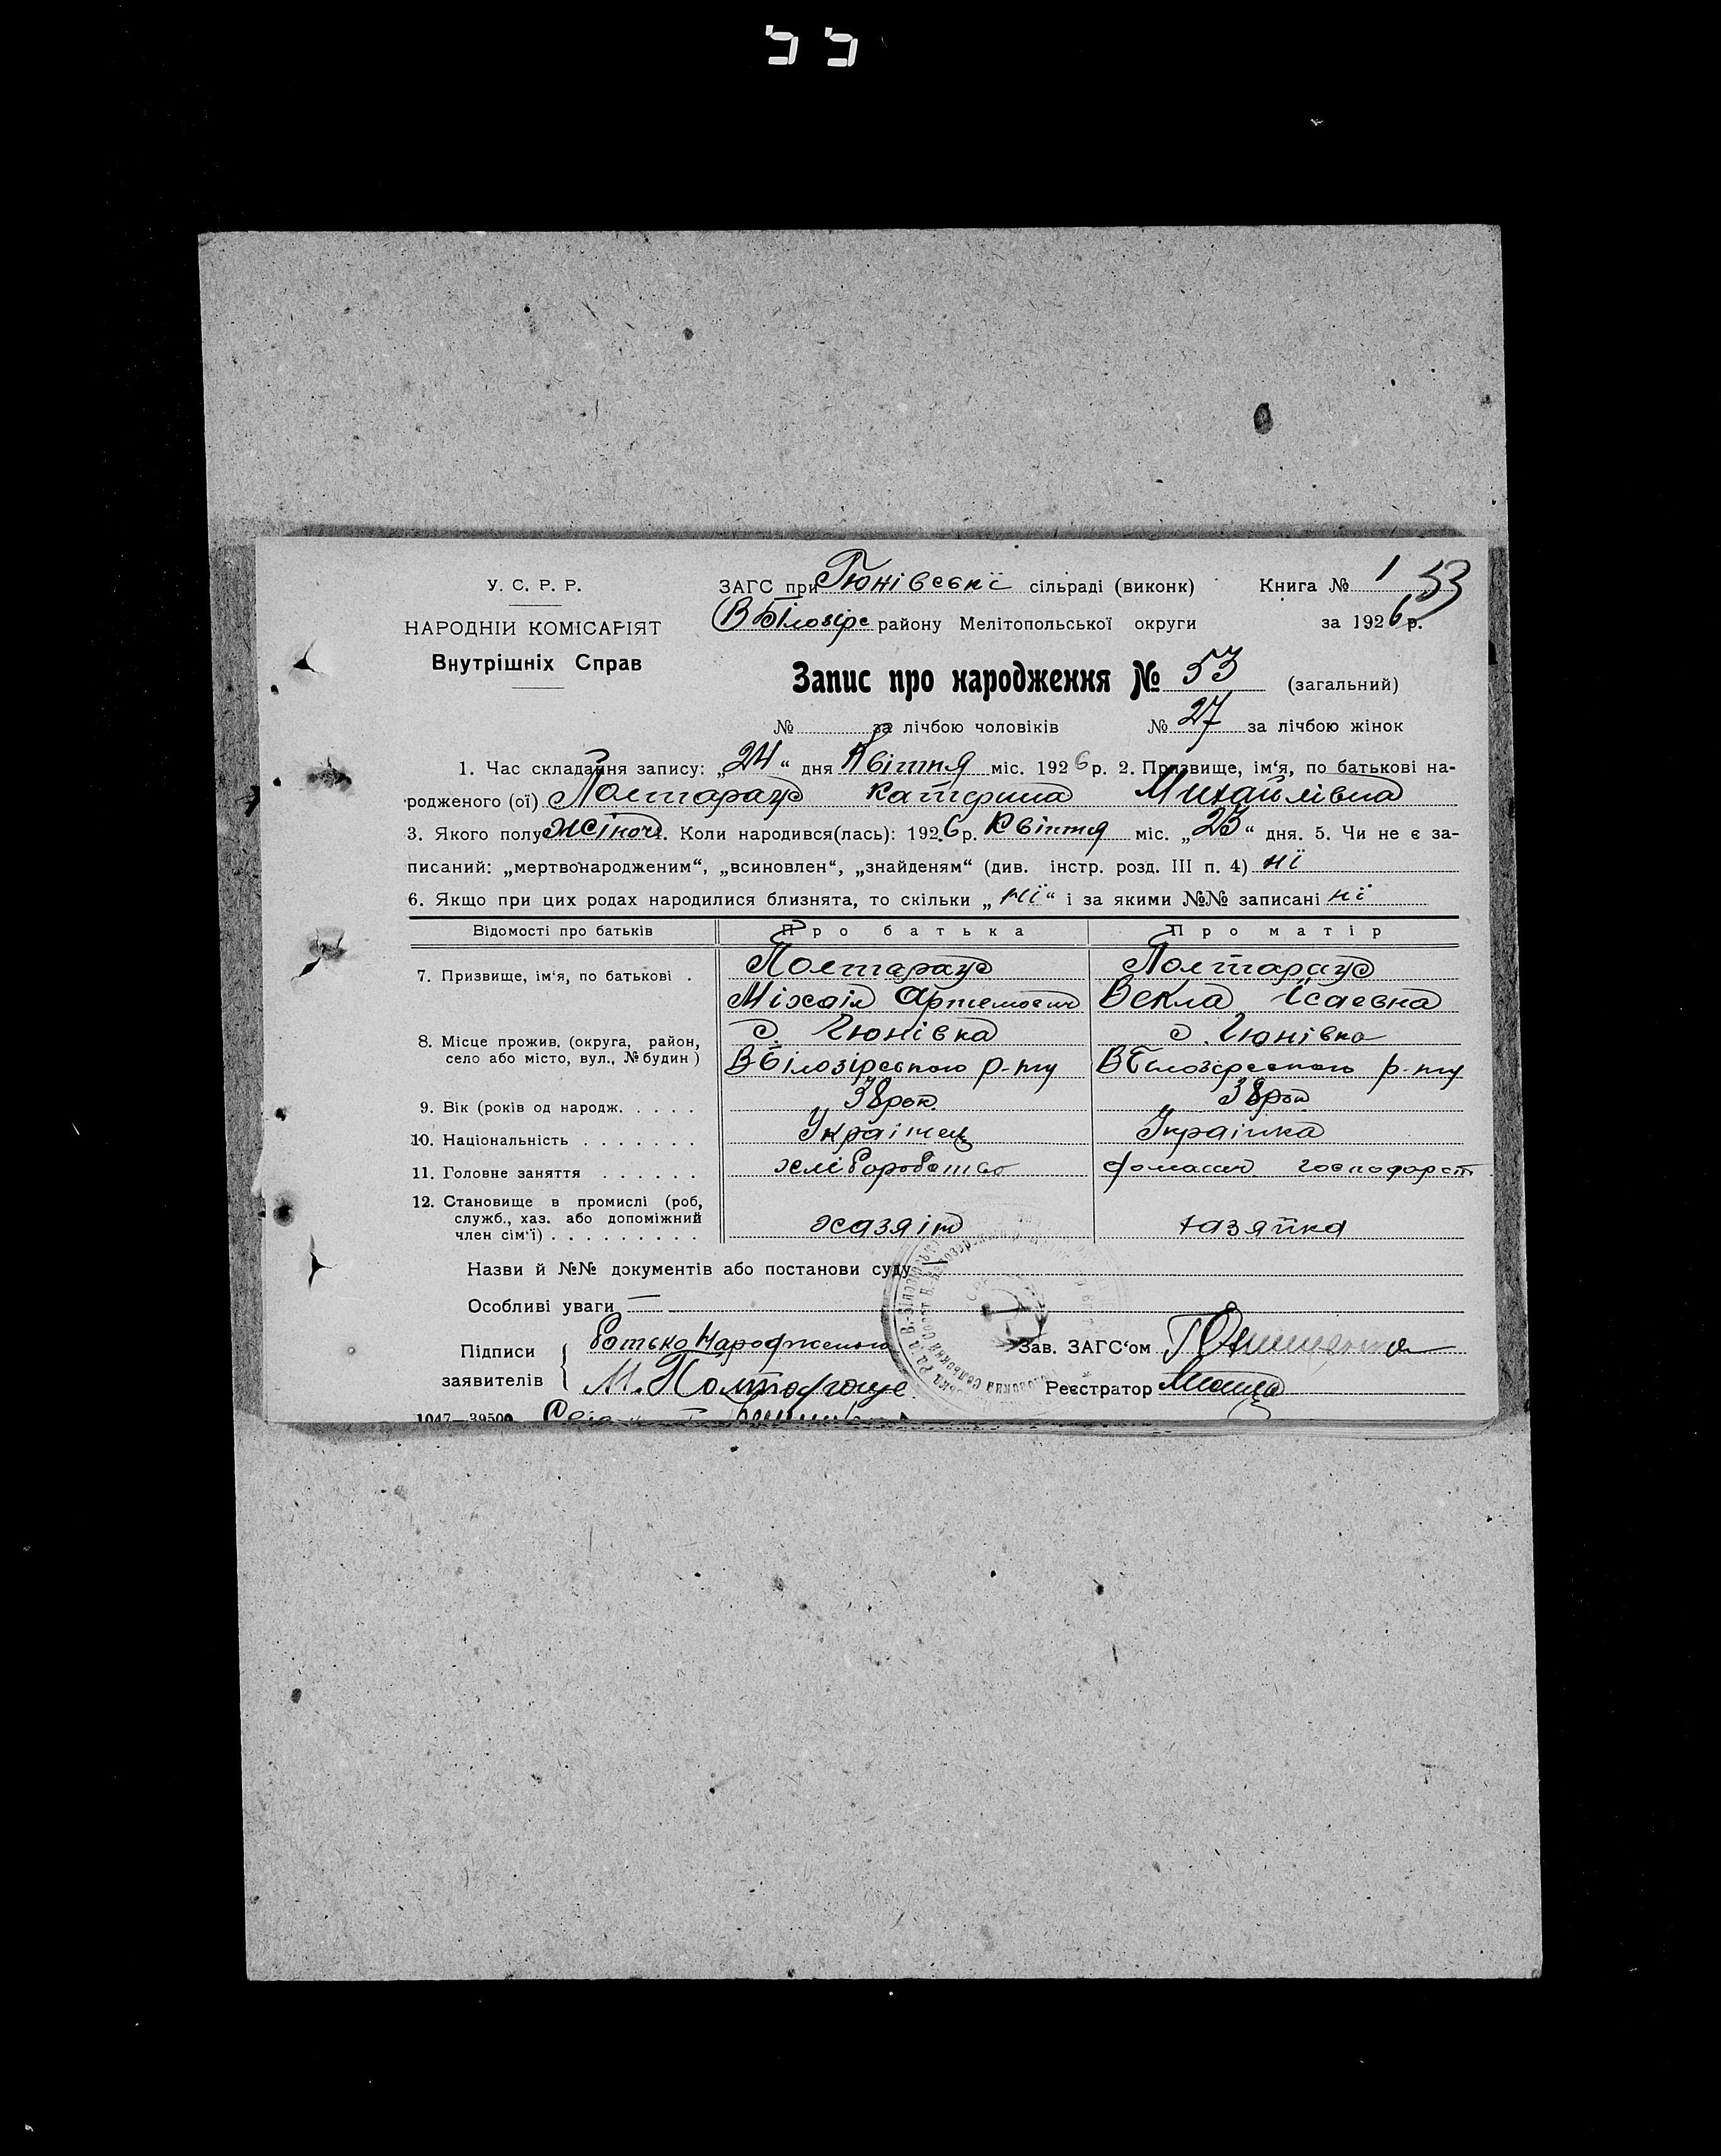 У. С. Р. Р.
НАРОДНІЙ КОМІСАРІЯТ
Внутрішніх Справ
ЗАГС при Гюнівські сільраді (виконк) Книга № 1 53
В Білозірс району Мелітопольської округи за 1926 р.
Запис про народження № 53 (загальний)
№ за лічбою чоловіків № 27 за лічбою жінок
1. Час складання запису: „24“ дня Квітня міс. 1926 р. 2. Призвище, ім‘я, по батькові на-
родженого (ої) Полтарац Катерина Михайлівна
3. Якого полу жіночі. Коли народився(лась): 1926 р. Квітня міс. „23“ дня. 5. Чи не є за-
писаний: „мертвонародженим“, „всиновлен“, „знайденям“ (див. інстр. розд. III п. 4) нї
6. Якщо при цих родах народилися близнята, то скільки „нї“ і за якими №№ записані нї
Відомості про батьків Про батька Про матір
7. Призвище, ім‘я, по батькові . Полтарац Полтарац
Міхаіл Артемович Векла Ісаевна
8. Місце прожив. (округа, район, с. Гюнівка с. Гюнівка
село або місто, вул., № будин) ВБілозірського р-ну ВБілозерского р-ну
9. Вік (років од народж. . . . . 38 рок. 38 рок
10. Національність . . . . . . . Украінец Украінка
11. Головне заняття . . . . . . хліборобство домашн господарст
12. Становище в промислі (роб,
служб., хаз. або допоміжний
член сім‘ї) . . . . . . . . . хазяін хазяйка
Назви й №№ документів або постанови суду
Особливі уваги —
Підписи
заявителів
батько Народженого
М. Полтарацк
Зав. ЗАГС‘ом
Реєстратор
1047—39500